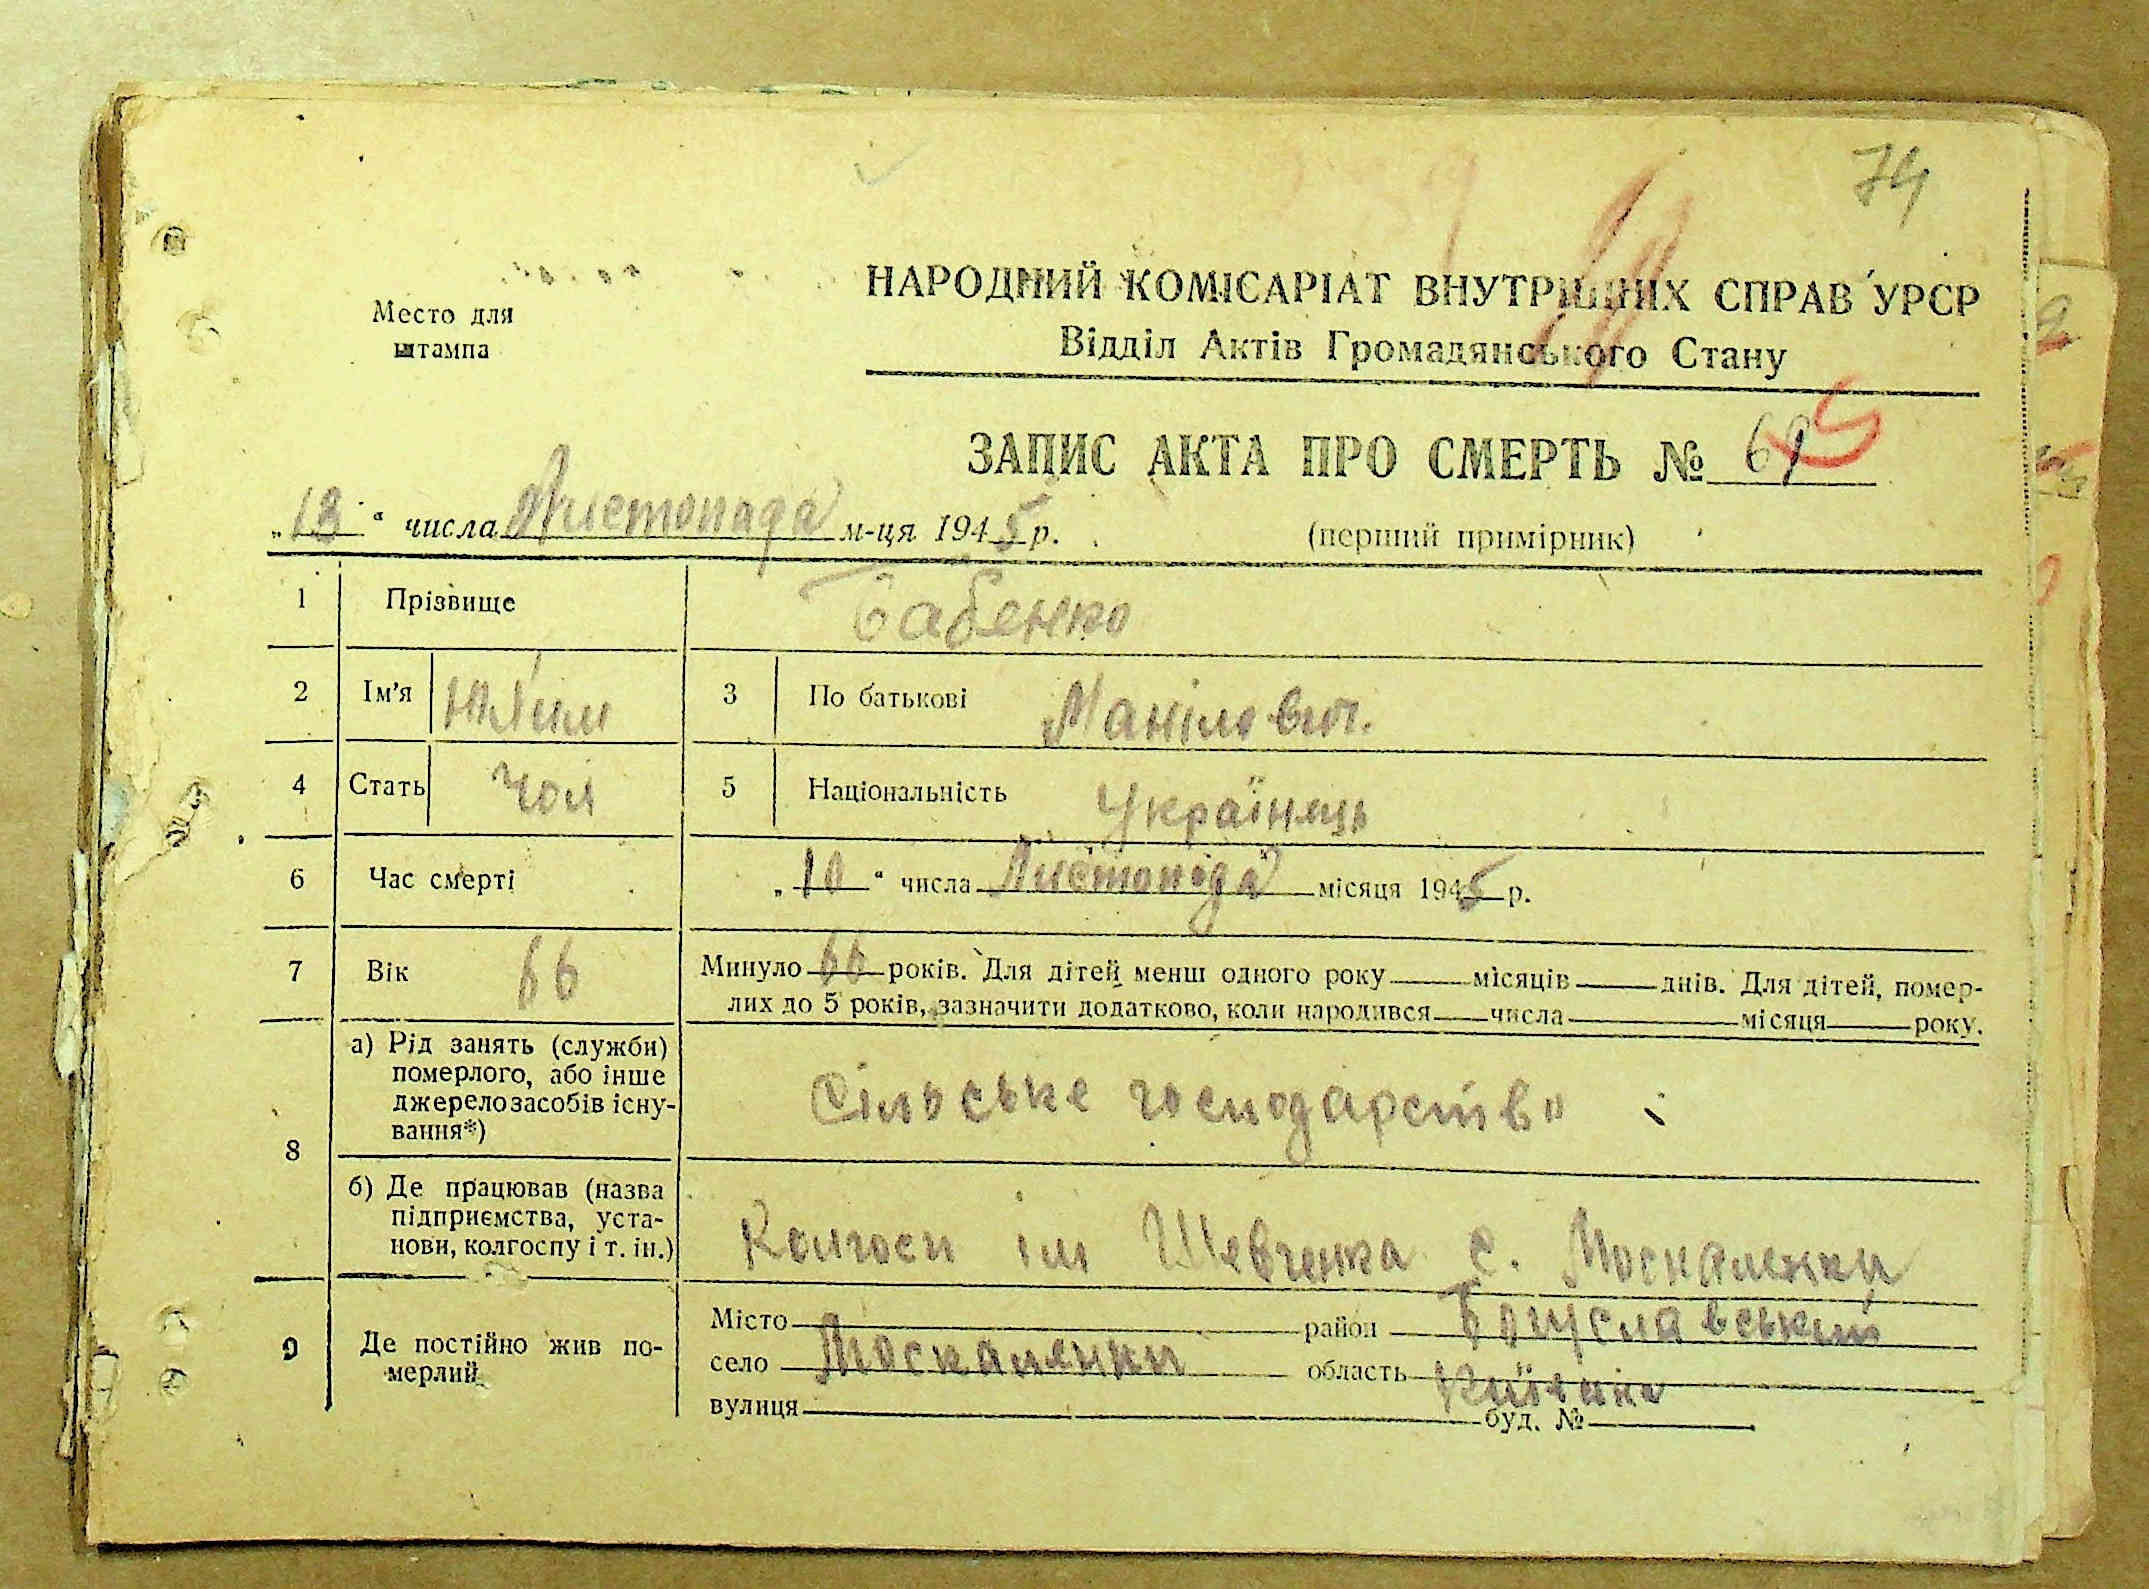 74
Место для
штампа
НАРОДНИЙ КОМІСАРІАТ ВНУТРІШНИХ СПРАВ УРСР
Відділ Актів Громадянського Стану
ЗАПИС АКТА ПРО СМЕРТЬ №
„13“ числа Листопада м-ця 1945 р.
(перший примірник)
1 Прізвище Бабенко
2 Ім'я 3 По батькові Манілович.
4 Стать чол 5 Національність Українець
6 Час смерті „10“ числа Листопада місяця 1945 р.
7 Вік 66 Минуло 66 років. Для дітей менш одного року місяців днів. Для дітей, помер-
лих до 5 років, зазначити додатково, коли народився числа місяця року.
8 а) Рід занять (служби)
померлого, або інше
джерело засобів існу-
вання*)
Сільське господарство
б) Де працював (назва
підприємства, уста-
нови, колгоспу і т. ін.)
Колгосп ім Шевченка с. Москаленки
9 Де постійно жив по-
мерлий
Місто район Богуславський
село Москаленки область
вулиця буд. №